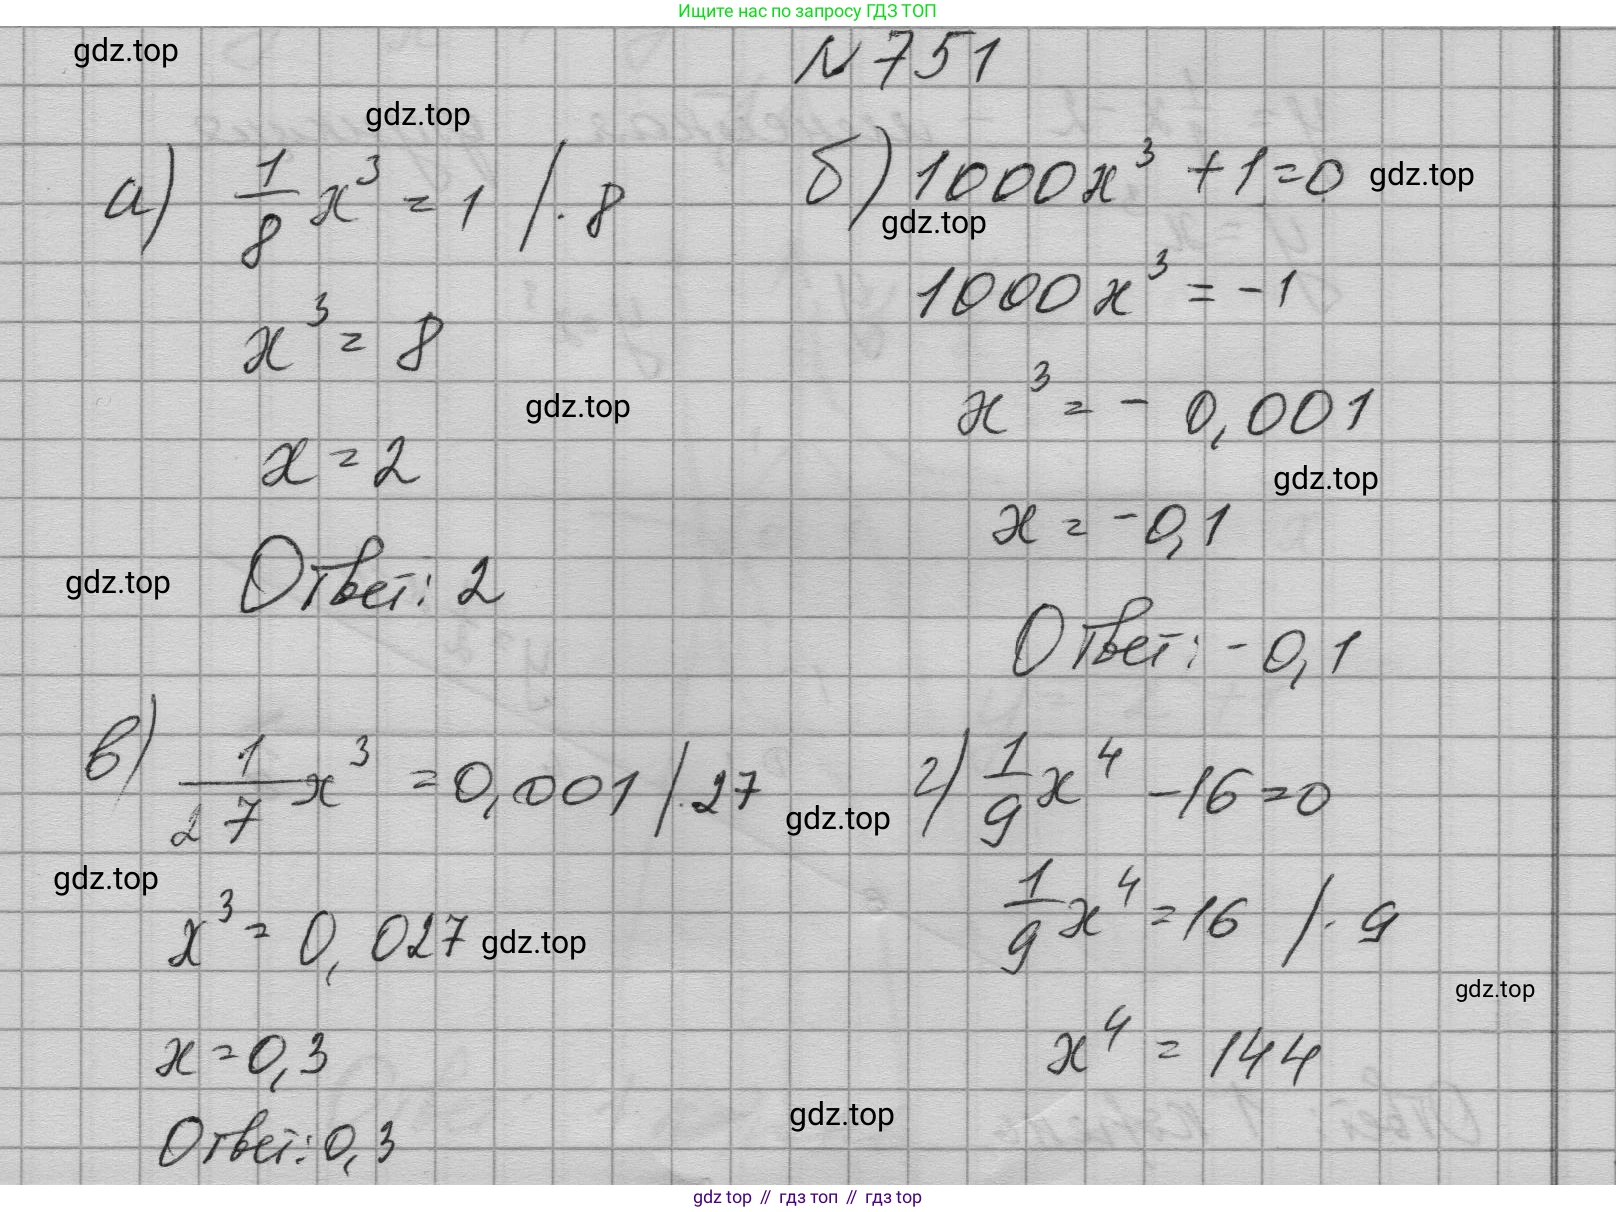 Ищите нас по запросу ГДЗ ТОП
gdz.top
N 751
gdz.top
а) 1/8 x³ = 1 / · 8
x³ = 8
gdz.top
x = 2
gdz.top
Ответ: 2
б) 1000x³ + 1 = 0
gdz.top
gdz.top
1000x³ = -1
x³ = - 0,001
gdz.top
x = -0,1
Ответ: -0,1
в) 1/27 x³ = 0,001 / · 27
gdz.top
gdz.top
x³ = 0,027
gdz.top
x = 0,3
Ответ: 0,3
г) 1/9 x⁴ - 16 = 0
1/9 x⁴ = 16 / · 9
gdz.top
x⁴ = 144
gdz.top
gdz top // гдз топ // гдз top